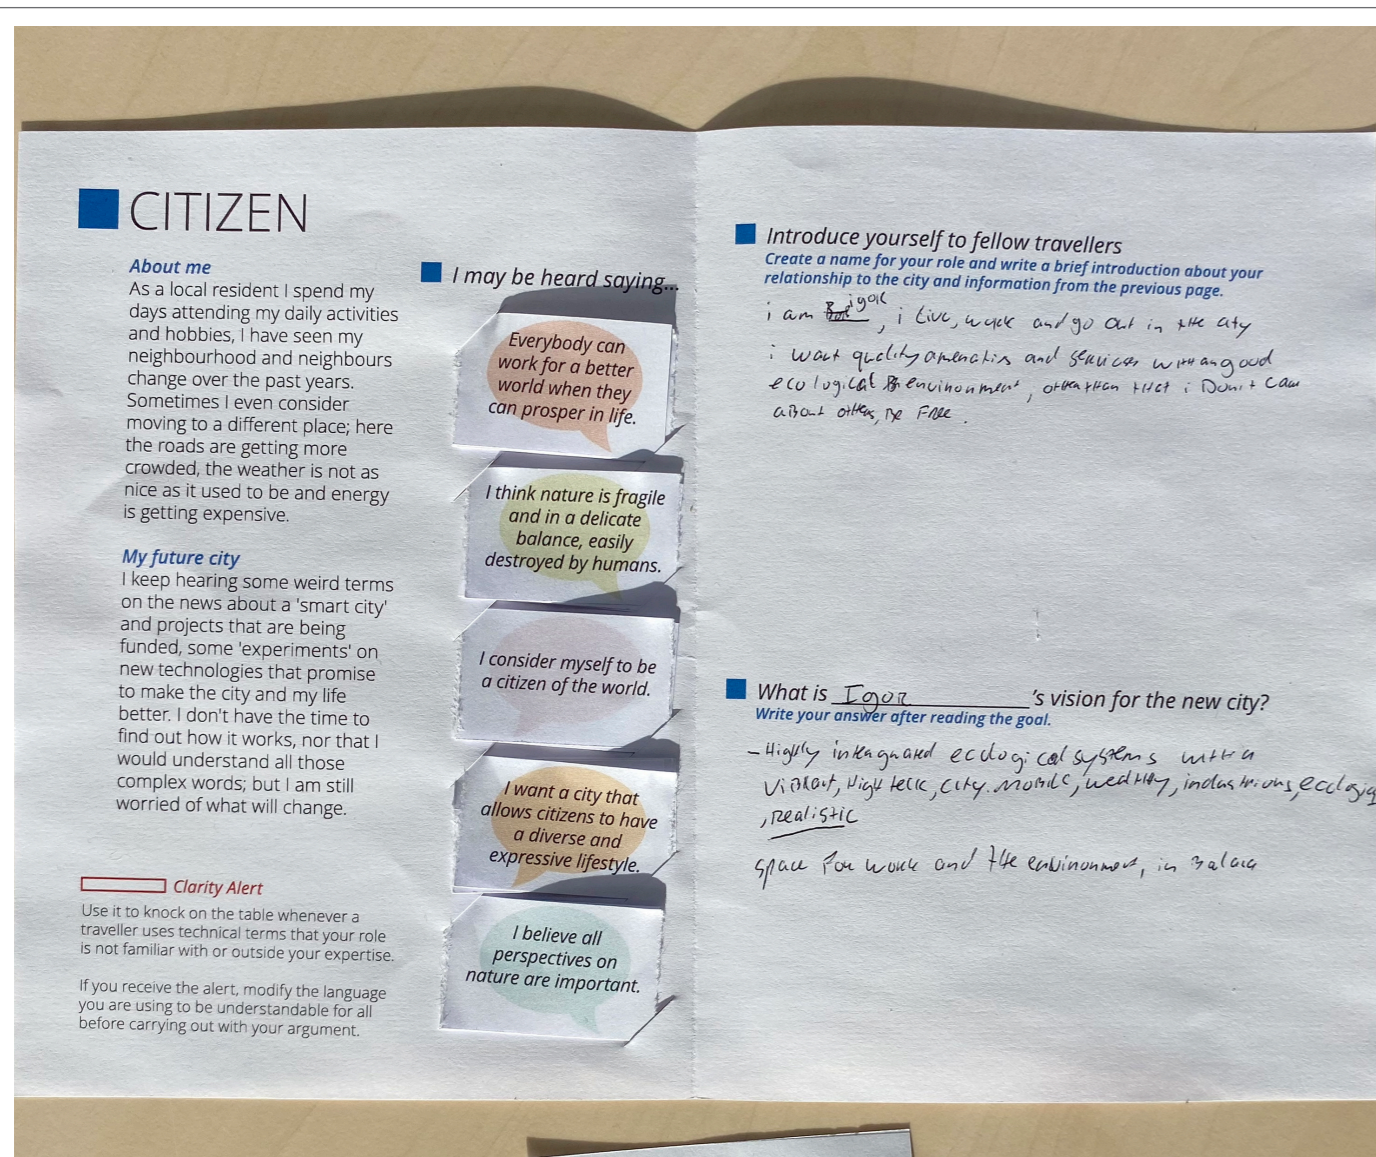 CITIZEN
About me
As a local resident I spend my
days attending my daily activities
and hobbies, I have seen my
neighbourhood and neighbours
change over the past years.
Sometimes I even consider
moving to a different place; here
the roads are getting more
crowded, the weather is not as
nice as it used to be and energy
is getting expensive.
My future city
I keep hearing some weird terms
on the news about a 'smart city'
and projects that are being
funded, some 'experiments' on
new technologies that promise
to make the city and my life
better. I don't have the time to
find out how it works, nor that I
would understand all those
complex words; but I am still
worried of what will change.
Clarity Alert
Use it to knock on the table whenever a
traveller uses technical terms that your role
is not familiar with or outside your expertise.
If you receive the alert, modify the language
you are using to be understandable for all
before carrying out with your argument.
I may be heard saying...
Everybody can
work for a better
world when they
can prosper in life.
I think nature is fragile
and in a delicate
balance, easily
destroyed by humans.
I consider myself to be
a citizen of the world.
I want a city that
allows citizens to have
a diverse and
expressive lifestyle.
I believe all
perspectives on
nature are important.
Introduce yourself to fellow travellers
Create a name for your role and write a brief introduction about your
relationship to the city and information from the previous page.
i am igor, i live, work and go out in the city
i want quality amenatis and services with an good
ecological environment, other then that i Don't care
about others, Be Free.
What is Igor's vision for the new city?
Write your answer after reading the goal.
- Highly ecological systems with a
High tech, city. wealthy, industrious,
, realistic
space For work and the environment, in